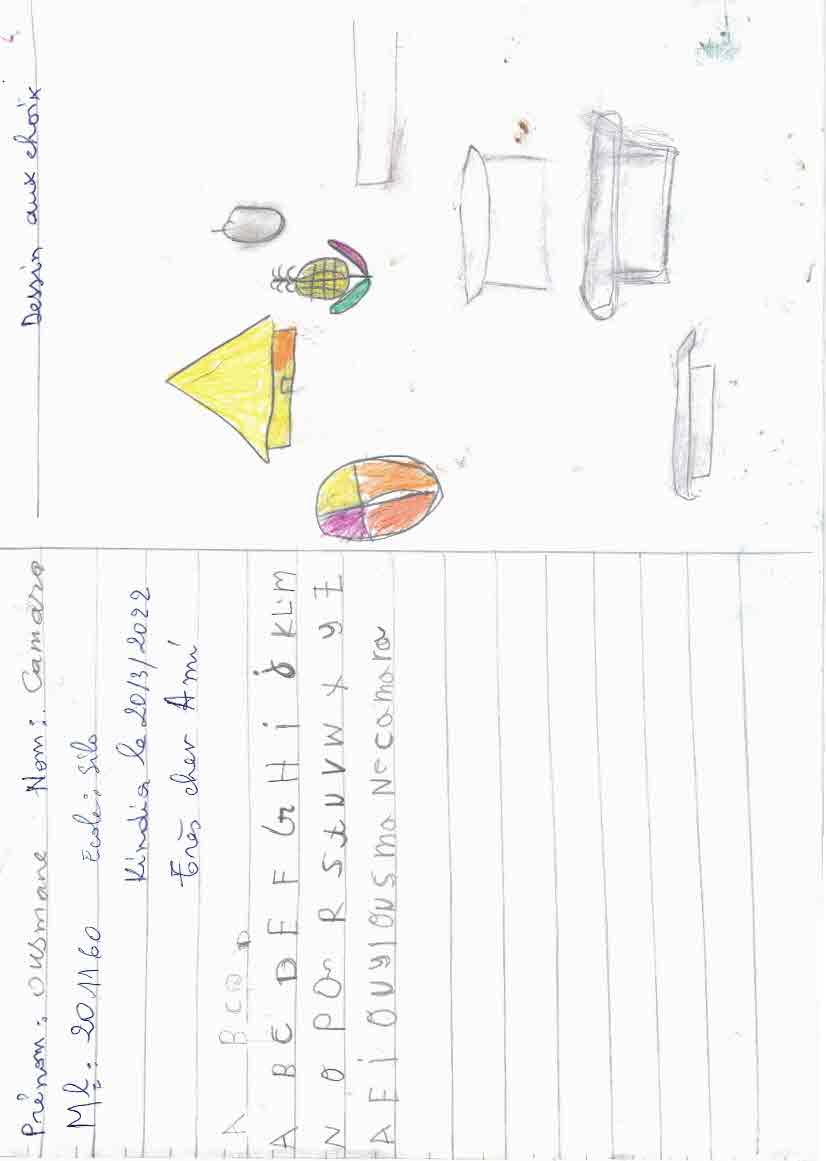 Prénom: ousmane Nom: Camara
Mle: 201160 Ecole: Silo
Kindia le 2013/2022
Très cher Ami
A B C D D
A B C D E F G H i j K L M
N O P Q R S t U V W X y Z
A E i O U Y I OUSmane camara
Dessin aux choix